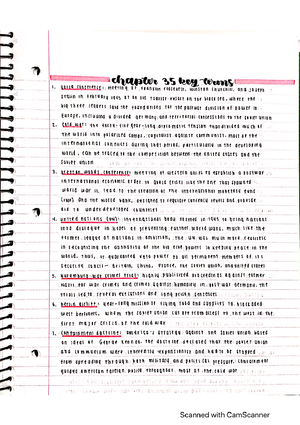 chapter 35 key terms
1. yalta conference: meeting of franklin roosevelt, winston churchill, and joseph
stalin in february 1945 at an old tsarist resort on the black sea, where the
big three leaders laid the foundations for the postwar division of power in
europe, including a divided germany and territorial concessions to the soviet union
2. cold war: the
world into polarized camps, capitalist against communist. most of the
international conflicts during that period, particularly in the developing
world, can be traced to the competition between the united states and the
soviet union
3. bretton woods conference: meeting of western allies to establish a postwar
international economic order to avoid crises like the one that spawned
world war ii. led to the creation of the international monetary fund
(imf) and the world bank, designed to regulate currency levels and provide
aid to underdeveloped countries
4. united nations (un): international body formed in 1945 to bring nations
into dialogue in hopes of preventing further world wars. much like the
former league of nations in ambition, the un was much more realistic
in recognizing the authority of the big four powers in keeping peace in the
world. thus, it guaranteed veto power to all permanent members of its
security council— britain, china, france, the soviet union, and united states
5. nuremberg war crimes trial: highly publicized proceedings against former
nazis for war crimes and crimes against humanity in postwar germany. the
trials led to several executions and long prison sentences
6. berlin airlift: year-long mission of flying food and supplies to blockaded
west berliners, whom the soviet union cut off from access to the west in the
first major crisis of the cold war
7. containment doctrine: america's strategy against the soviet union based
on ideas of george kennan. the doctrine declared that the soviet union
and communism were inherently expansionist and had to be stopped
from spreading through both military and political pressure. containment
guided american foreign policy throughout most of the cold war
Scanned with CamScanner